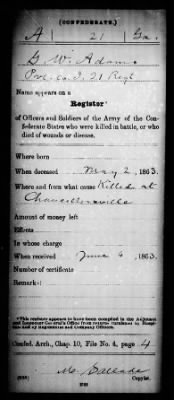 (CONFEDERATE.)
A 21 Ga.
G. W. Adams
Pvt. Co. I, 21 Regt
Name appears on a
Register*
of Officers and Soldiers of the Army of the Con-
federate States who were killed in battle, or who
died of wounds or disease.
Where born
When deceased May 2, 1863.
Where and from what cause Killed at
Chancellorsville
Amount of money left
Effects
In whose charge
When received June 6, 1863.
Number of certificate
Remarks:
*This register appears to have been compiled in the Adjutant
and Inspector General's Office from returns
and Company Officers.
Confed. Arch., Chap. 10, File No. 4, page 4
Copyist.